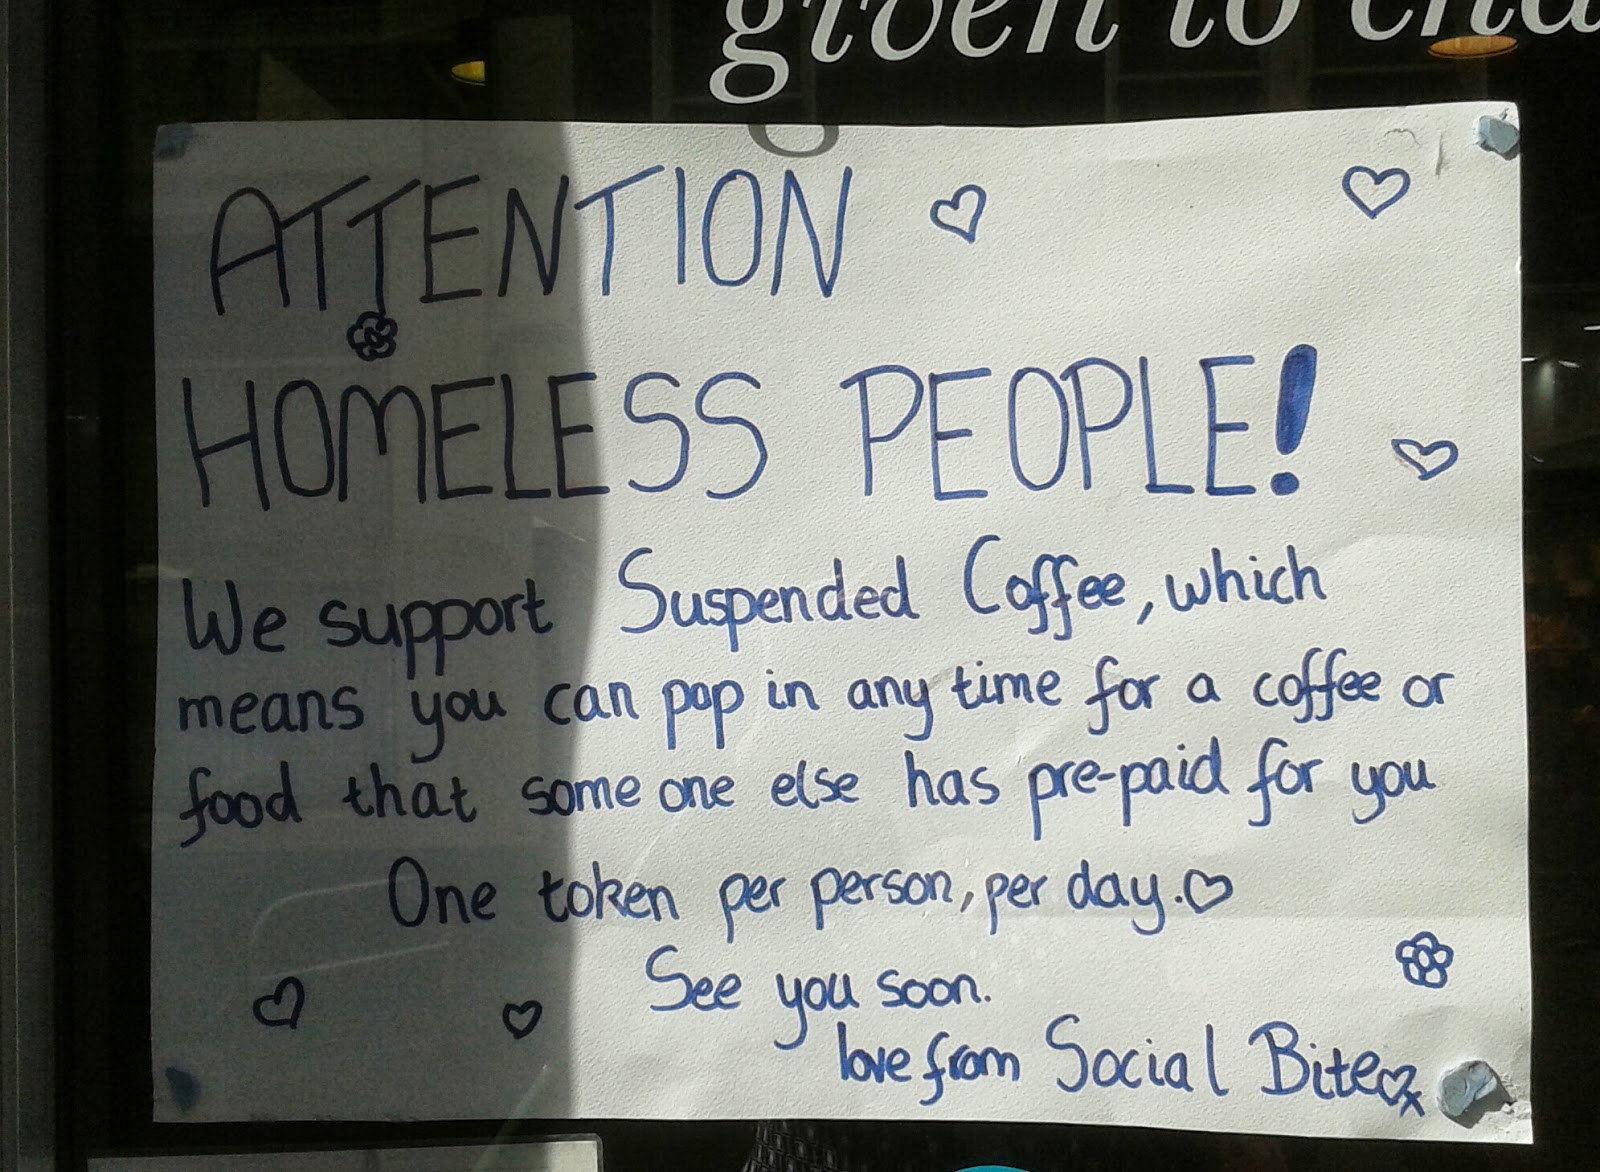 given to cha
ATTENTION
HOMELESS PEOPLE!
We support Suspended Coffee, which
means you can pop in any time for a coffee or
food that someone else has pre-paid for you
One token per person, per day.
See you soon.
love from Social Bite x